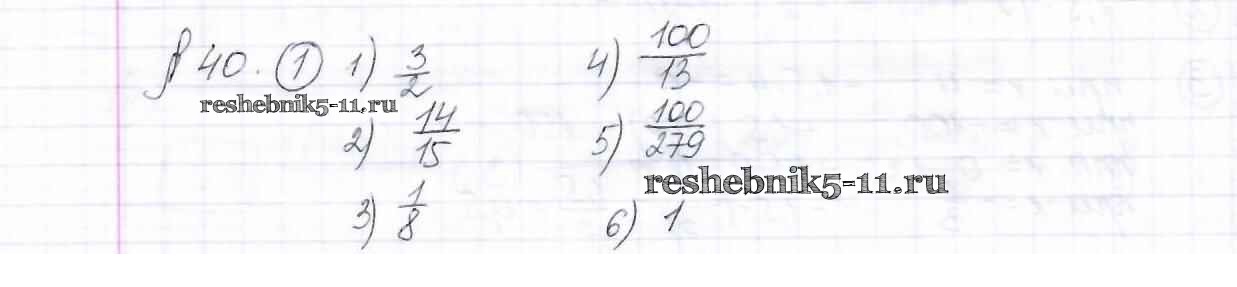 § 40. ① 1) 3/2
4) 100/13
reshebnik5-11.ru
2) 14/15
5) 100/279
reshebnik5-11.ru
3) 1/8
6) 1